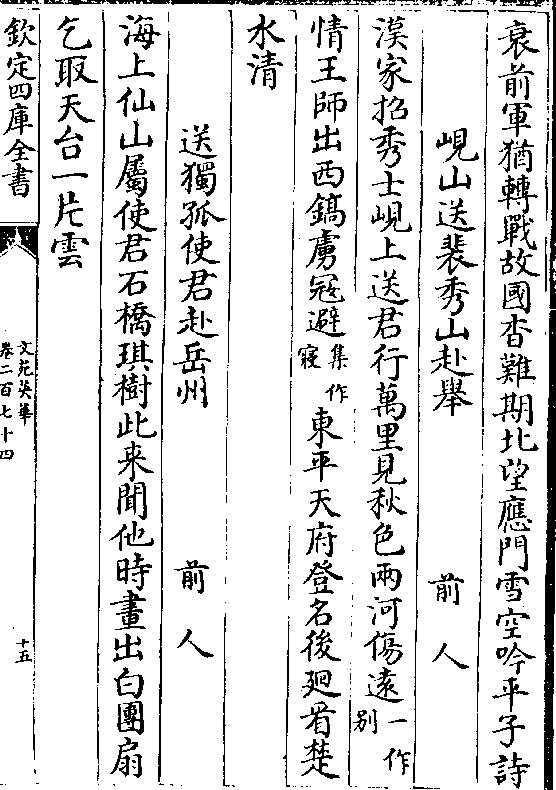 衰前軍猶轉戰故國杳難期北望應門雪空吟平子詩
峴山送裴秀山赴舉 前人
漢家招秀士峴上送君行萬里見秋色兩河傷遠一作别
情王師出西鎬虜冦避集作寝東平天府登名後廻看楚
水清
送獨孤使君赴岳州 前人
海上仙山屬使君石橋琪樹此来聞他時畫出白團扇
乞取天台一片雲
欽定四庫全書
文苑英華
卷二百七十四
十五